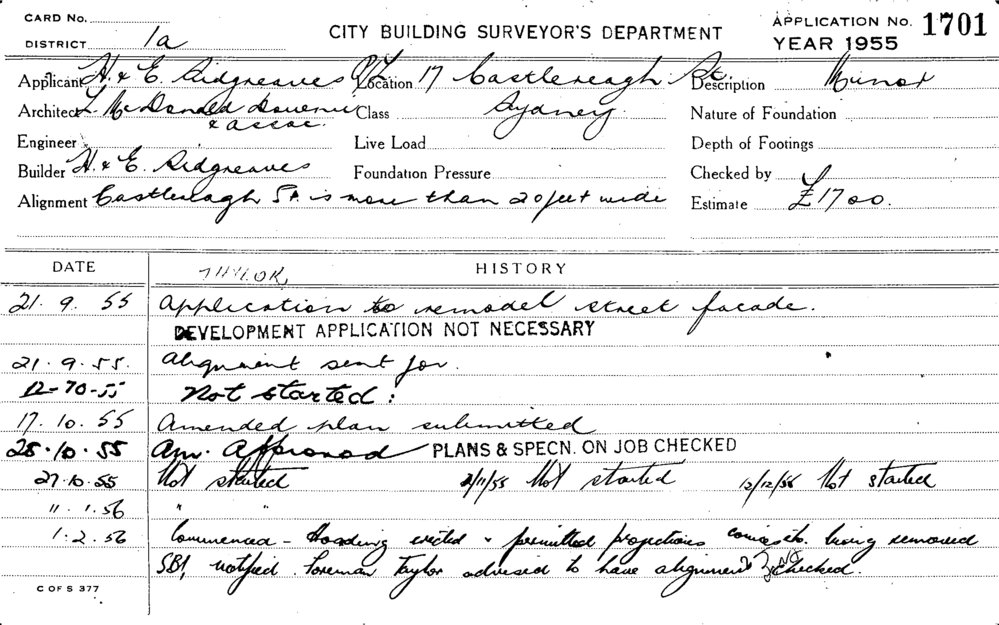 CARD No.
DISTRICT 1a
CITY BUILDING SURVEYOR'S DEPARTMENT
APPLICATION No. 1701
YEAR 1955
Applicant H. & E. Sidgreaves P/L
Location 17 Castlereagh St.
Description Minor
Architect L McDonald
& assoc.
Class Sydney
Nature of Foundation
Engineer
Live Load
Depth of Footings
Builder H. & E. Sidgreaves
Foundation Pressure
Checked by
Alignment Castlereagh St. is more than 20 feet wide
Estimate £1700.
DATE HISTORY
21. 9. 55 Application to remodel street facade.
DEVELOPMENT APPLICATION NOT NECESSARY
21. 9. 55. Alignment sent for.
12-10-55 Not started:
17. 10. 55 Amended plan submitted
25.10.55 Am. Approved PLANS & SPECN. ON JOB CHECKED
27.10.55 Not started 2/11/55 Not started 12/12/55 Not started
11. 1.56 " "
1. 2. 56 Commenced - Hoarding erected & permitted projections being removed
SBI, notified. Foreman Taylor advised to have alignment checked.
C OF S 377